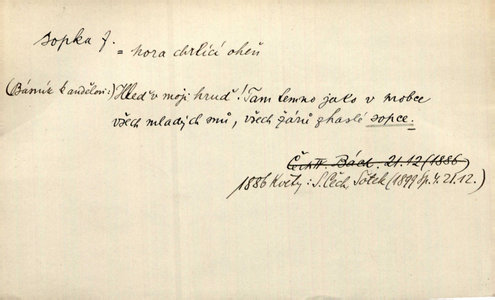 sopka f.
= hora chrlící oheň
(Básník k andělovi:) Hleď v moji hruď! Tam temno jako v hrobce
všech mladých snů, všech žárů zhaslé sopce.
Čech II. Bách. 21.12 (1886)
1886 Květy: S. Čech, Šotek (1899 Sp. 4.21.12.)